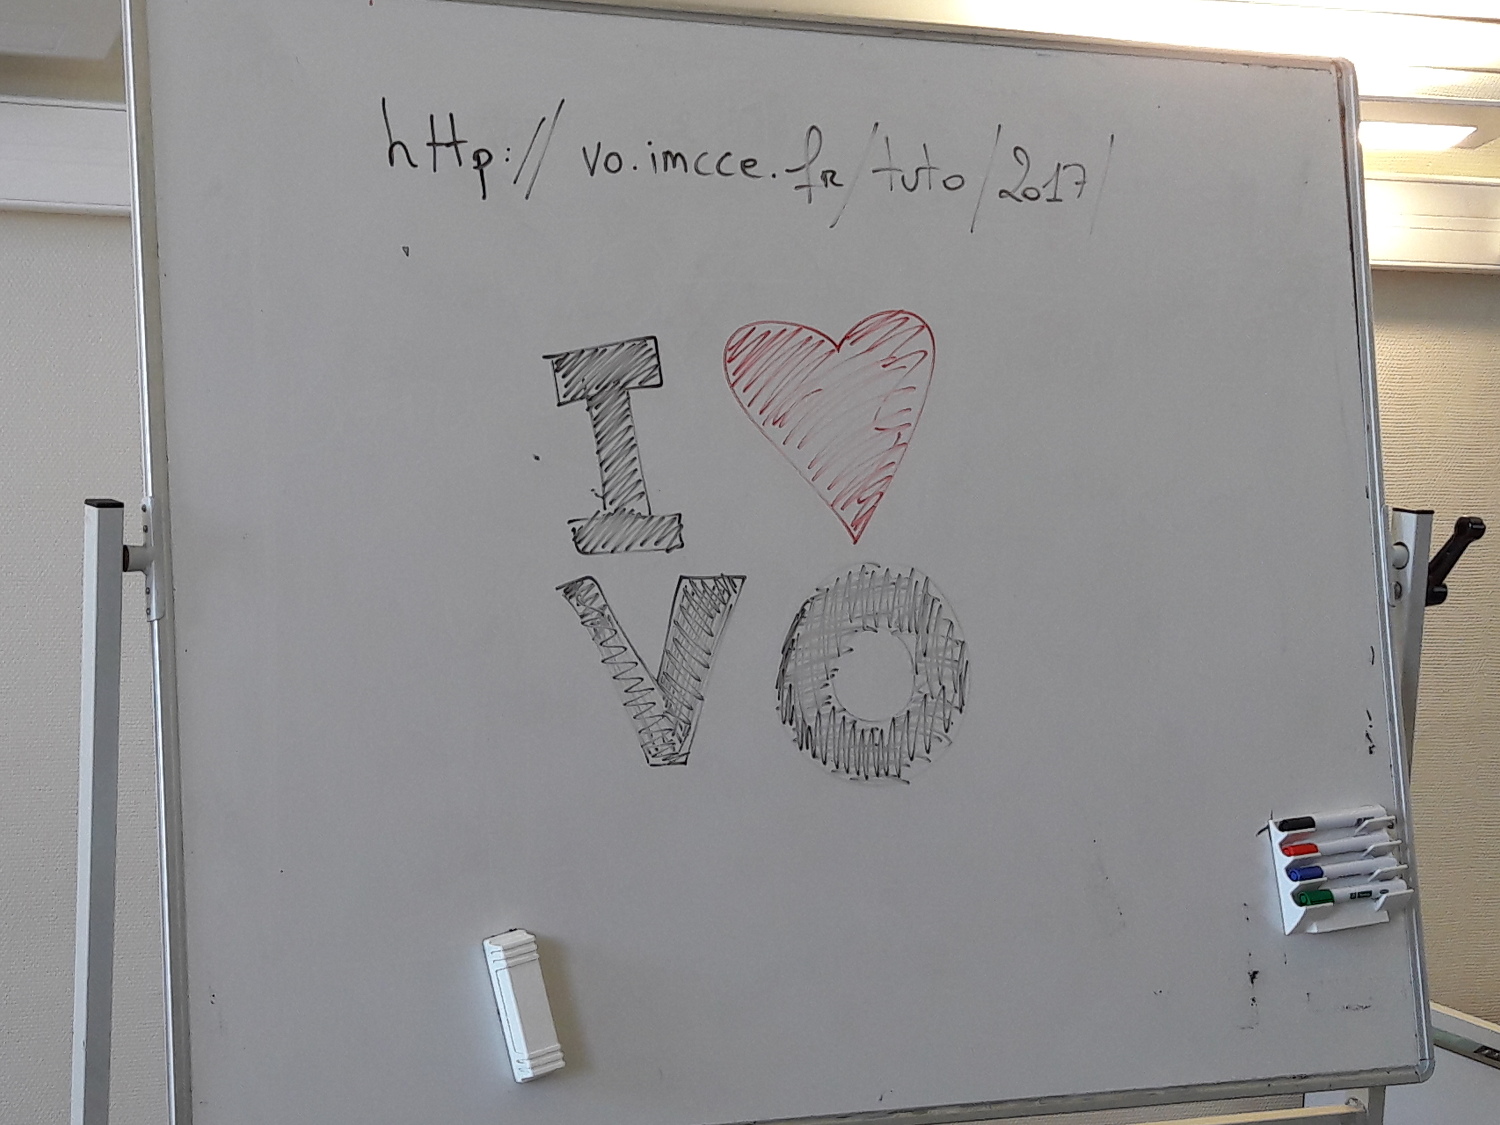 http://vo.imcce.fr/tuto/2017/
I ♥
VO